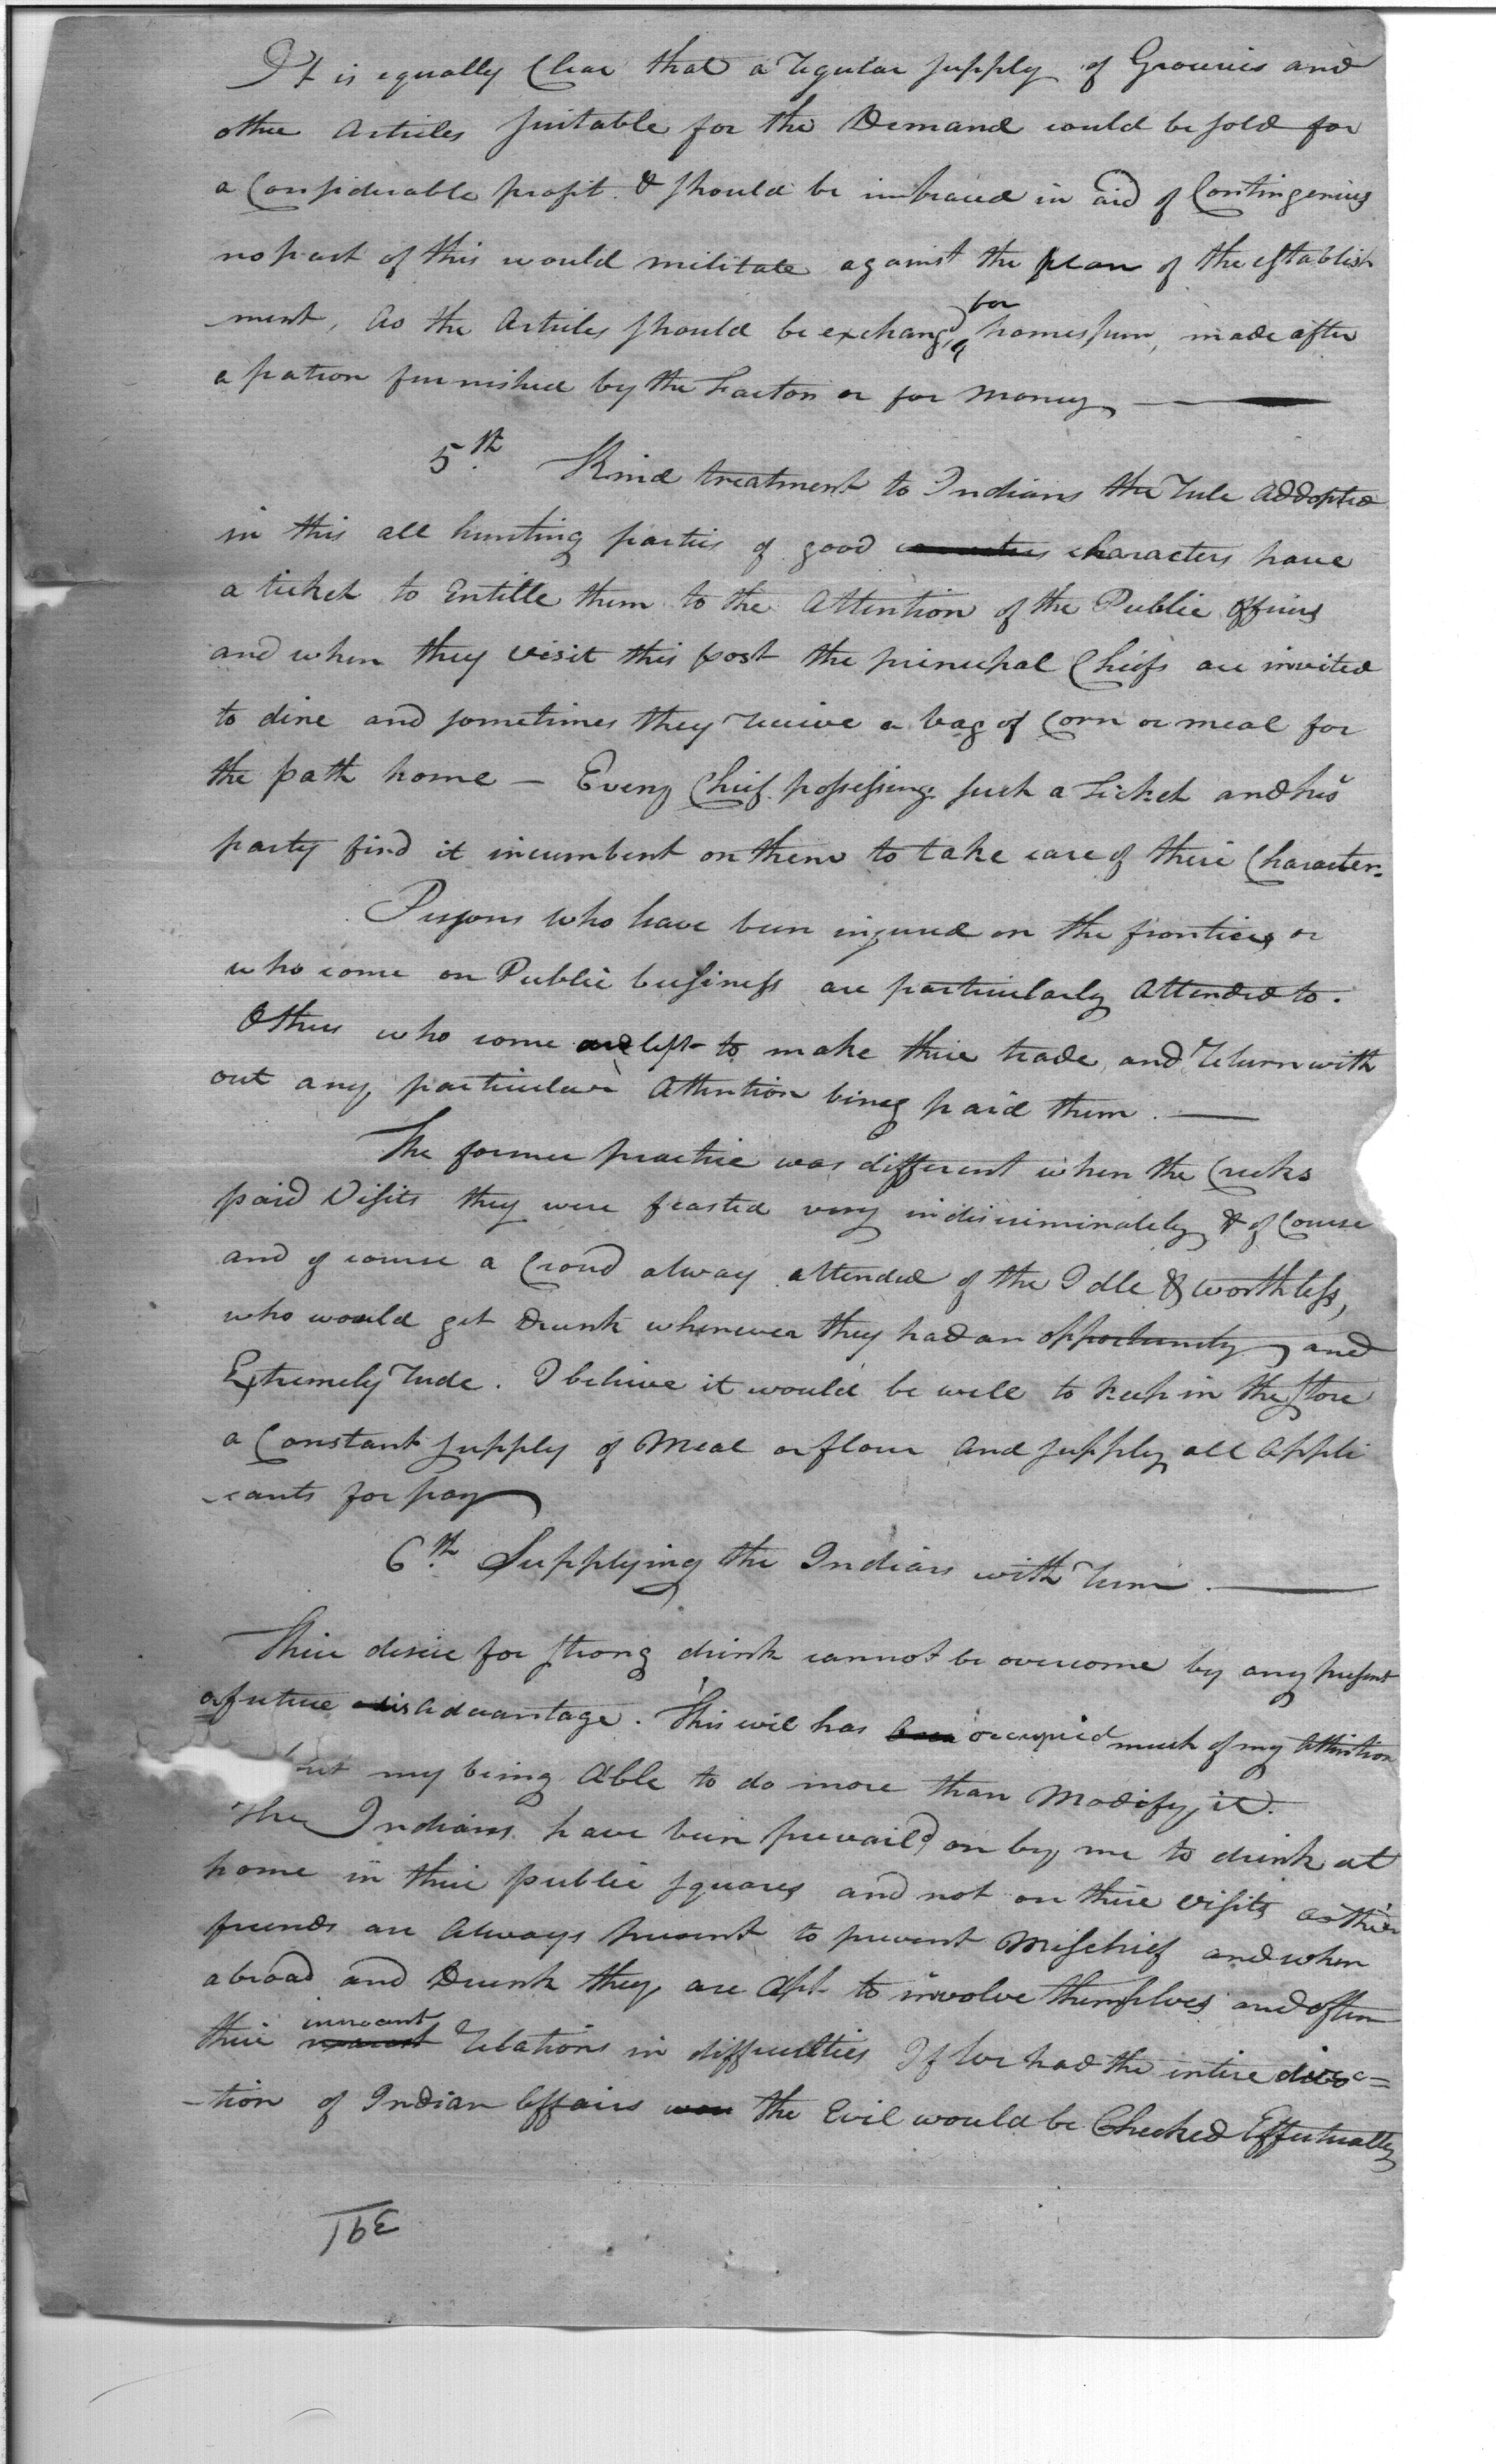 It is equally Clear that a regular supply of Groceries and
other Articles suitable for the Demand could be sold for
a Considerable profit & should be imbraced in aid of Contingencies
no part of this would militate against the plan of the establish
-ment, as the Articles should be exchangd for homespun, made after
a patron furnished by the Factor or for money
5th. Kind treatment to Indians the rule addopted
in this all hunting parties of good characters have
a ticket to Entitle them to the Attention of the Public officers
and when they visit this post the principal Chiefs are invited
to dine and sometimes they receive a bag of Corn or meal for
the path home — Every Chief possessing such a Ticket and his
party find it incumbent on them to take care of their Character.
Persons who have been injured on the frontiers or
who come on Public business are particularly attended to.
Others who come are left to make their trade and return with
out any particular Attention being paid them.
The former practice was different when the Creeks
paid Visits they were feasted very indiscriminately & of Course
and of course a Croud alway attended of the Idle & worthless,
who would get Drunk whenever they had an opportunity and
Extremely rude. I believe it would be well to keep in the store
a Constant supply of Meal or flour and supply all appli
-cants for pay
6th. Supplying the Indians with rum.
Their desire for strong drink cannot be overcome by any present
or future disadvantage. This evil has occupied much of my attention
my being Able to do more than Modify it.
The Indians have been prevaild on by me to drink at
home in their public squares and not on their visits as their
friends are Always present to prevent Mischief and when
abroad and Drunk they are Apt to involve themselves and often
their innocent relations in difficulties If we had the intire direc=
-tion of Indian Affairs the Evil would be Checked Effectually
391